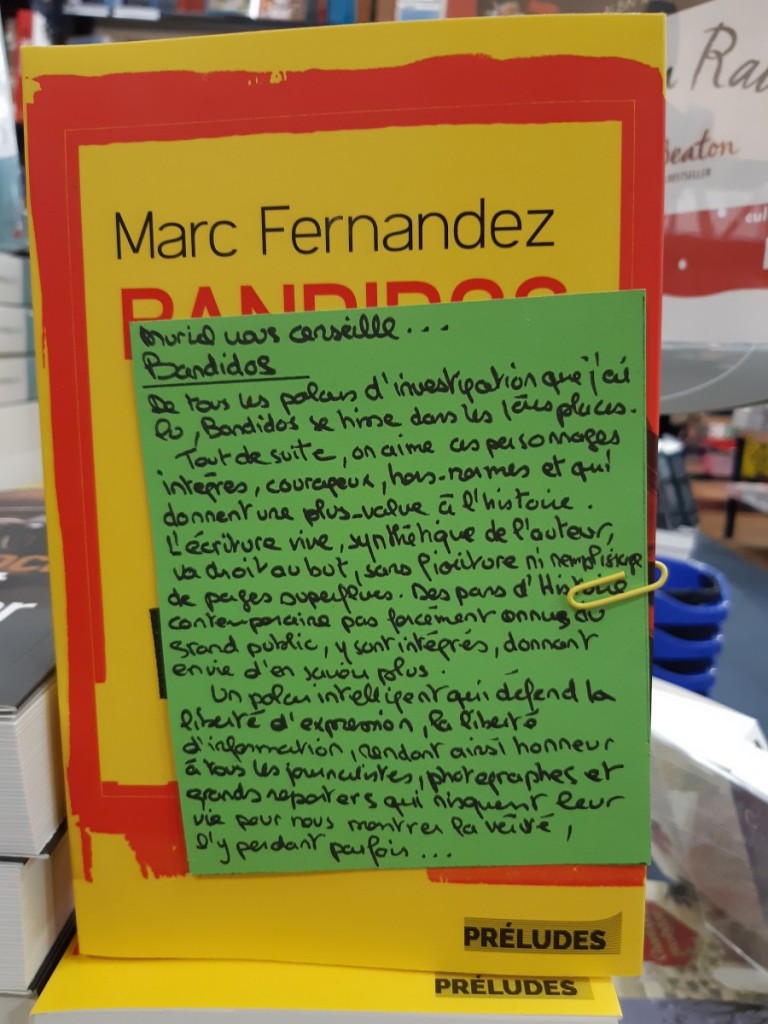 Marc Fernandez
BANDIDOS
Muriel vous conseille...
Bandidos
De tous les polars d'investigation que j'ai
lu, Bandidos se hisse dans les 1ères places.
Tout de suite, on aime ces personnages
intègres, courageux, hors-normes et qui
donnent une plus-value à l'histoire.
L'écriture vive, synthétique de l'auteur,
va droit au but, sans fioriture ni remplissage
de pages superflues. Des pans d'Histoire
contemporaine pas forcément connus du
grand public, y sont intégrés, donnant
envie d'en savoir plus.
Un polar intelligent qui défend la
liberté d'expression, la liberté
d'information, rendant ainsi honneur
à tous les journalistes, photographes et
grands reporters qui risquent leur
vie pour nous montrer la vérité,
s'y perdant parfois...
PRÉLUDES
PRÉLUDES
Beaton
BESTSELLER